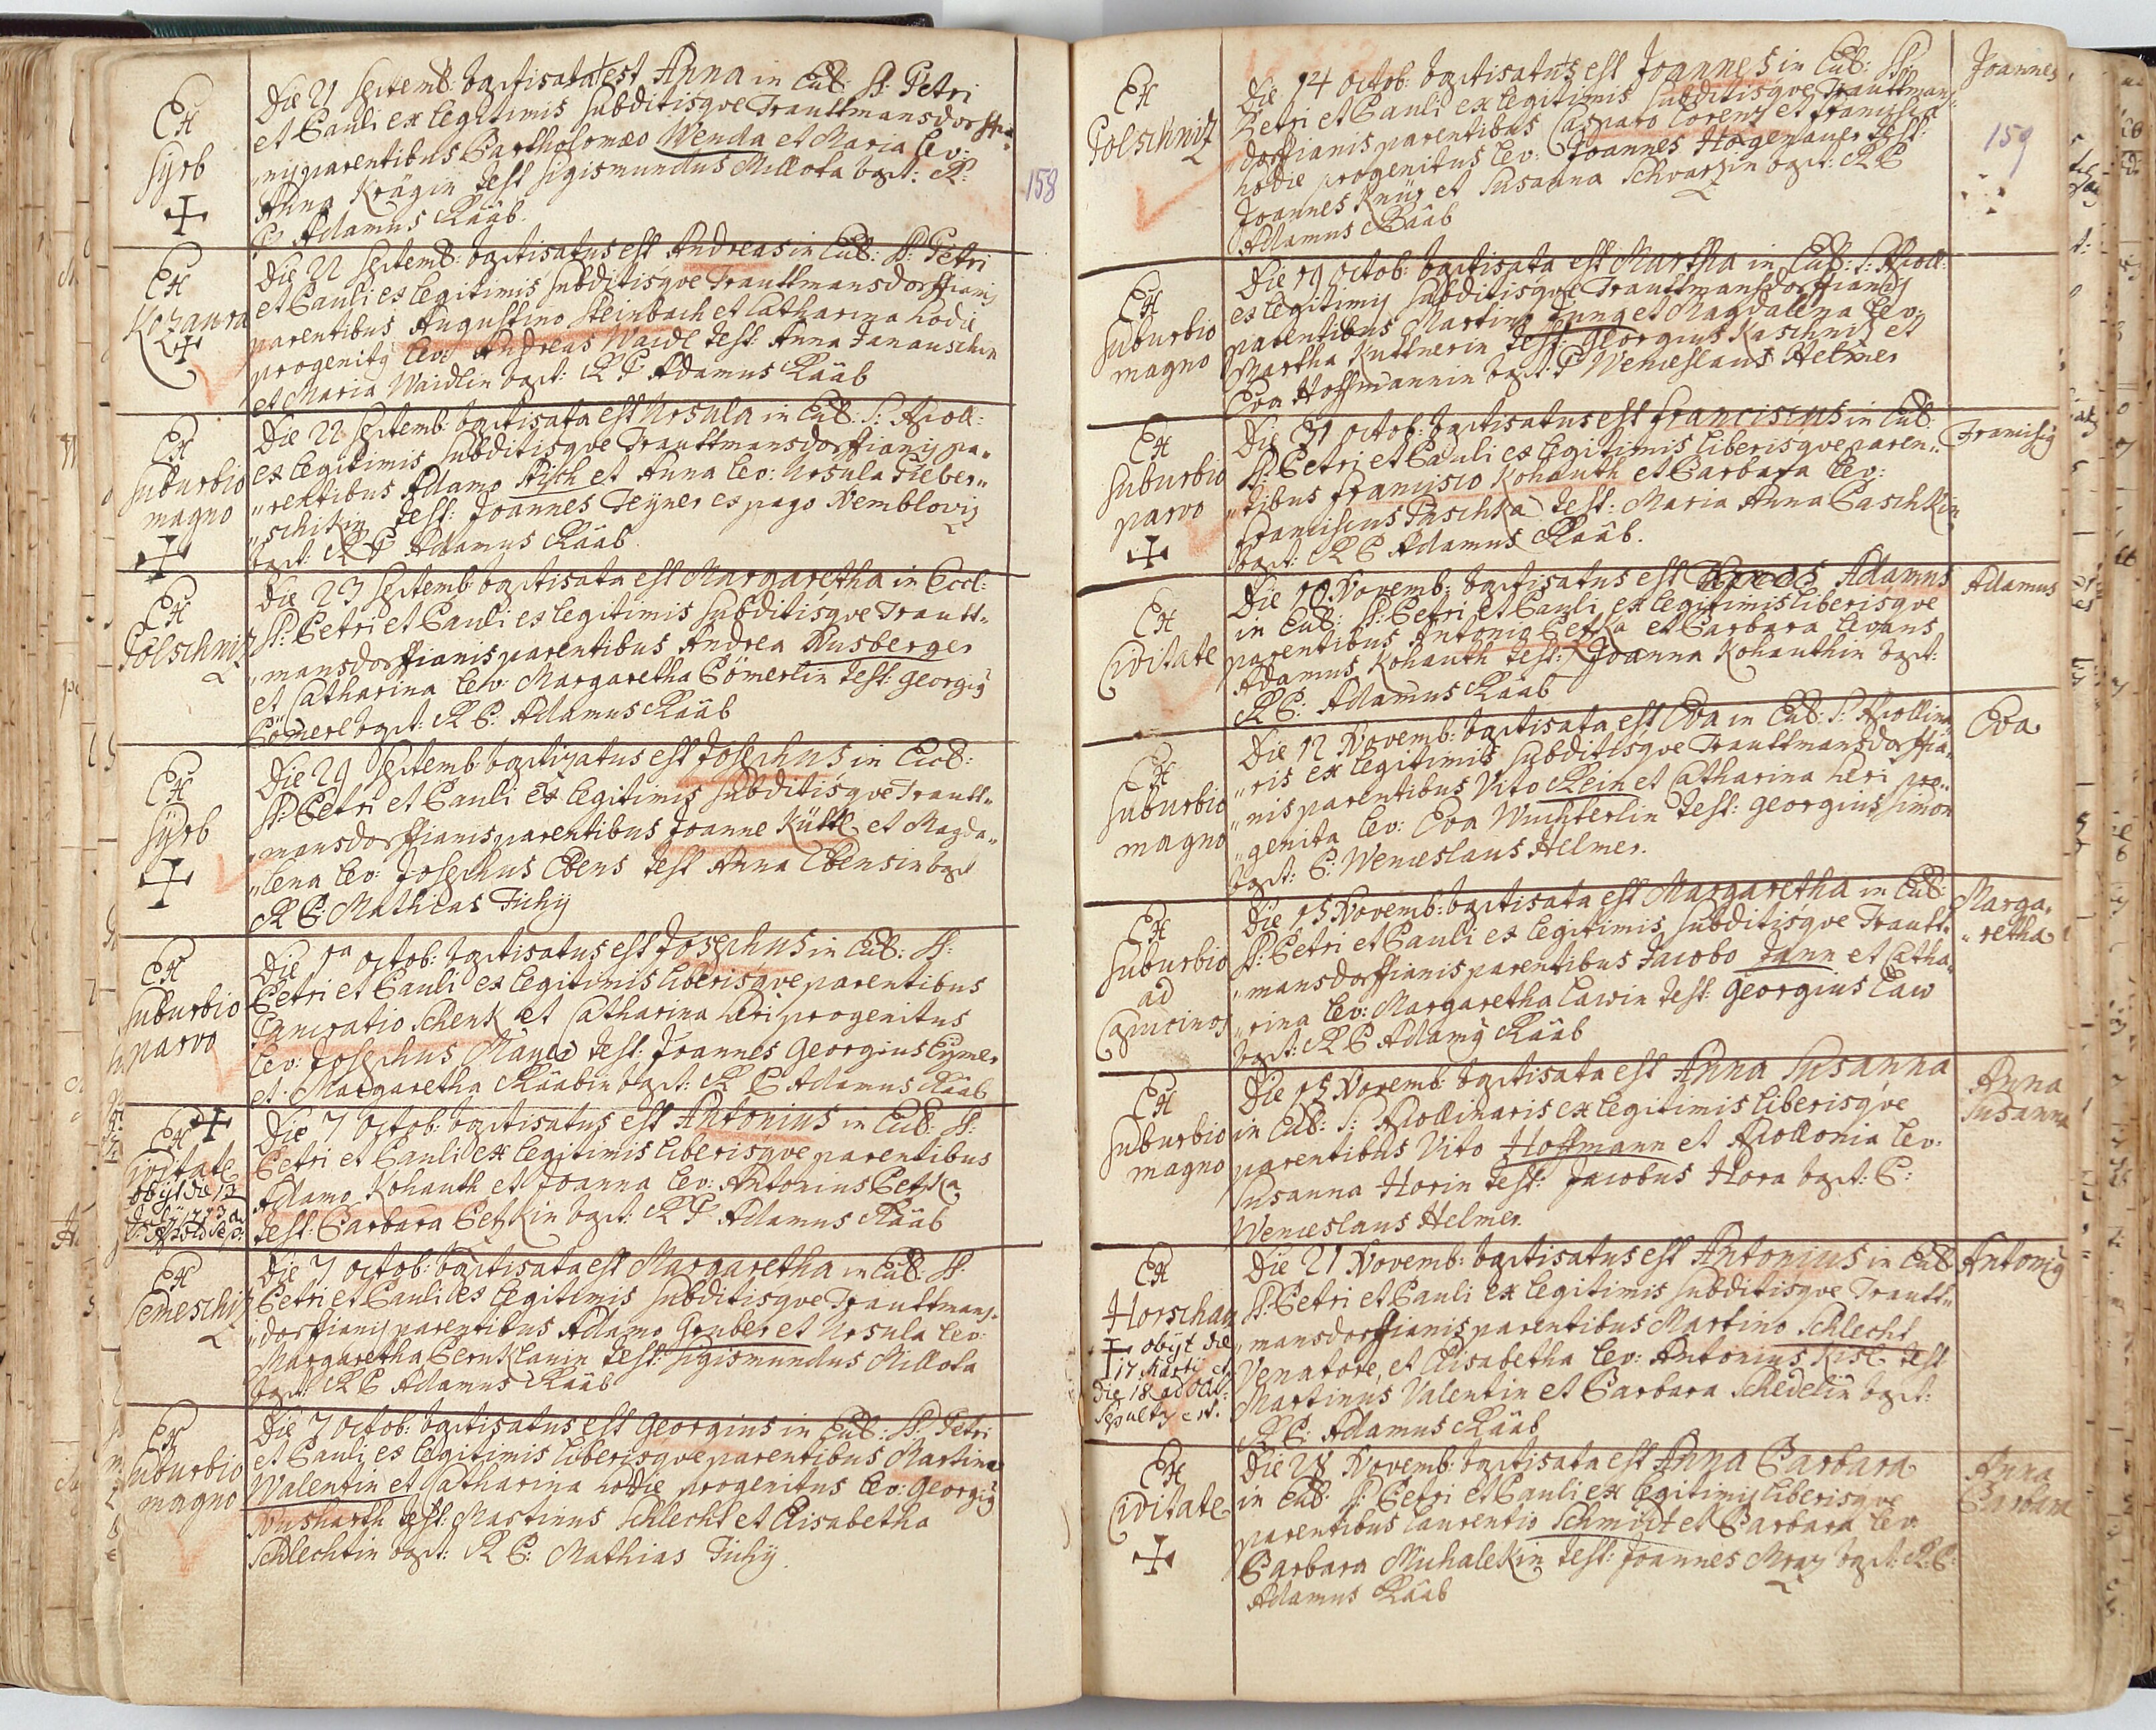 Ex
Syrb
Die 21 Septemb: baptisata est Anna in Eccl: SS: Petri
et Pauli ex legitimis subditisqve Trauttmansdorffia„
„nis parentibus Bartholomæo Wenda et Maria lev:
Anna Krägin test Sigismundus Millota bapt: R:
P Adamus Raab.
158
Ex
Kozaura
Die 22 Septemb: baptisatus est Andreas in Eccl: SS: Petri
et Pauli ex legitimis subditisqve Trauttmansdorffianis
parentibus Augustino Steinbach et Catharina hodie
progenitq lev: Andreas Waidl test: Anna Janauschin
et Maria Waidlin bapt: R P Adamus Raab
Ex
Suburbio
magno
Die 22 Septemb: baptisata est Ursula in Eccl: S: Apoll:
ex legitimis subditisqve Trauttmansdorffianis pa„
„rentibus Adamo Pisch et Anna lev: Ursula Pieber„
„schikin test: Joannes Teyner ex pago Wemblowiz
bapt: R P Adamus Raab
Ex
Polschniz
Die 23 Septemb: baptisata est Margaretha in Eccl:
SS: Petri et Pauli ex legitimis subditisqve Trautt„
„mansdorffianis parentibus Andrea Ausberger
et Catharina lev: Margaretha Pömerlin test: Georgiq
Pömerl bapt: R P: Adamus Raab
Ex
Syrb
Die 29 Septemb: baptizatus est Josephus in Eccl:
SS: Petri et Pauli ex legitimis subditisqve Trautt„
„mansdorffianis parentibus Joanne Küttl et Magda„
„lena lev: Josephus Ebens test Anna Ebensin bapt
R P: Mathias Tichy
Ex
Suburbio
parvo
Die 1a Octob: baptisatus est Josephus in Eccl: SS:
Petri et Pauli ex legitimis liberisqve parentibus
Pancratio Schenk et Catharina heri progenitus
lev: Josephus Mayer test: Joannes Georgius Eymer
et Margaretha Raabin bapt: R P Adamus Raab
Ex
Civitate
obijt die 13
Die 7 Octob: baptisatus est Antonius in Eccl: SS:
Petri et Pauli ex legitimis liberisqve parentibus
Adamo Kohauth et Joanna lev: Antonius Pezka
test: Barbara Pezkin bapt: R P Adamus Raab
Ex
Semeschiz
Die 7 Octob: baptisata est Margaretha in Eccl: SS:
Petri et Pauli ex legitimis subditisqve Trauttmans„
„dorffianis parentibus Adamo Gruber et Ursula lev:
Margaretha Pernklauin test: Sigismundus Millota
bapt: R P Adamus Raab
Ex
Suburbio
magno
Die 7 Octob: baptisatus est Georgius in Eccl: SS: Petri
et Pauli ex legitimis liberisqve parentibus Martino
Walentin et Catharina hodie progenitus lev: Georgiq
test: Martinus Schlecht et Elisabetha
Schlechtin bapt: R P: Mathias Tichy.
Ex
Polschniz
Die 14 Octob: baptisatus est Joannes in Eccl: SS:
Petri et Pauli ex legitimis subditisqve Trauttmans„
„dorffianis parentibus Casparo Lorenz et Francisca
hodie progenitus lev: Joannes Hagenauer test:
Joannes Knür et Susanna Schvarzin bapt: R P
Adamus Raab
Joannes
159
Ex
Suburbio
magno
Die 19 Octob: baptisata est Martha in Eccl: S: Apoll:
ex legitimis subditisqve Trauttmansdorffianis
parentibus Martino Jung et Magdalena lev:
Martha Kuttnerin test: Georgius Kaschniz et
Eva Hoffmannin bapt: P Wenceslaus Helmer
Ex
Suburbio
parvo
Die 31 Octob: baptisatus est Franciscus in Eccl:
SS: Petri et Pauli ex legitimis liberisqve paren„
„tibus Francisco Kohauth et Barbara lev:
Franciscus Paschka test: Maria Anna Paschkin
bapt: R P Adamus Raab.
Franciscq
Ex
Civitate
Die 10 Novemb: baptisatus est Adamus
in Eccl: SS: Petri et Pauli ex legitimis liberisqve
parentibus Antonio Pezka et Barbara levans
Adamus Kohauth test: Joanna Kohauthin bapt:
R P: Adamus Raab
Adamus
Ex
Suburbio
magno
Die 12 Novemb: baptisata est Eva in Eccl: S: Apollina„
„ris ex legitimis subditisqve Trauttmansdorffia„
„nis parentibus Vito Rein et Catharina heri pro„
„genita lev: Eva Wuchterlin test: Georgius Simon
bapt: P: Wenceslaus Helmer.
Eva
Ex
Suburbio
ad
Capucinos
Die 15 Novemb: baptisata est Margaretha in Eccl:
SS: Petri et Pauli ex legitimis subditisqve Trautt„
„mansdorffianis parentibus Jacobo Jann et Catha„
„rina lev: Margaretha Lawin test: Georgius Law
bapt: R P Adamq Raab
Marga„
„retha
Ex
Suburbio
magno
Die 15 Novemb: baptisata est Anna Susanna
in Eccl: S: Apollinaris ex legitimis liberisqve
parentibus Vito Hoffmann et Apollonia lev:
Susanna Horin test: Jacobus Hora bapt: P:
Wenceslaus Helmer.
Anna
Susanna
Ex
Horschau
obijt die
17 Martij et
die 18
sepultq est.
Die 21 Novemb: baptisatus est Antonius in Eccl
SS: Petri et Pauli ex legitimis subditisqve Trautt„
„mansdorffianis parentibus Martino Schlecht
Venatore, et Elisabetha lev: Antonius Kisl test
Martinus Valentin et Barbara Schedelin bapt:
R P: Adamus Raab
Antoniq
Ex
Civitate
Die 28 Novemb: baptisata est Anna Barbara
in Eccl: SS: Petri et Pauli ex legitimis liberisqve
parentibus Laurentio Schmidt et Barbara lev:
Barbara Michalekin test: Joannes Mraz bapt: R P:
Adamus Raab
Anna
Barbara